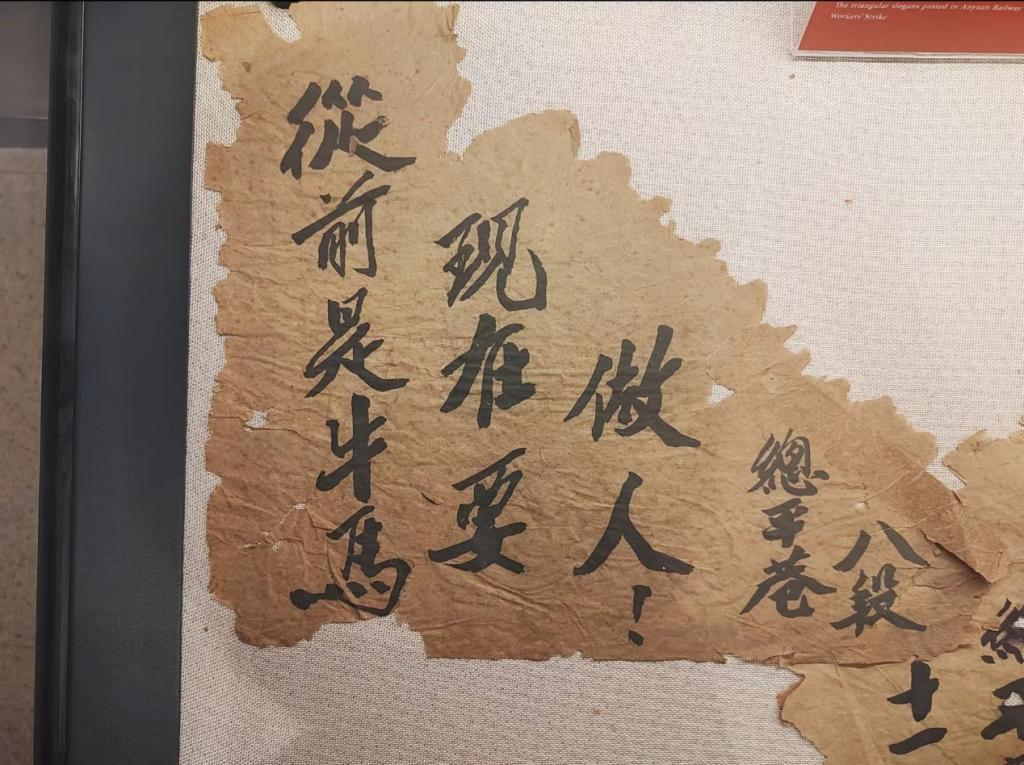 The triangular slogans posted in Anyuan Railway
Workers' Strike
從前是牛馬
現在要
做人！
總平巷
八段
十一